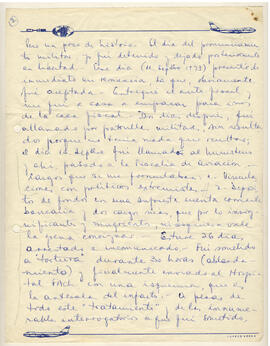 Pero un poco de historia. El día del pronunciamien
to militar yo fui detenido y dejado posteriormente
en libertad. Ese día (11. Septbre 1973) presenté de
inmediato mi renuncia la que, obviamente
fué aceptada. Entregué el auto fiscal,
me fui a casa a empacar para irnos
de la casa fiscal. Dos días después, fui
allanado por patrulla militar. Sin resulta
dos porque no tenía nada que ocultar.
el día 14 Septbre fui llamado al Ministerio
y ahí, pasado a la Fiscalía de Aviación
Cargos que se me formulaban: 1. Vincula
ciones con políticos extremistas. 2. Depósi
to de fondos en una supuesta cuenta corriente
bancaria y dos cargos más, que por lo insig-
nificante y mugriento ni siquiera vale
la pena consignar. Estuve 26 días
arrestado e incomunicado. Fui sometido
a "tortura" durante 30 horas (ablanda
miento) y finalmente enviado al Hospi
tal FACH con una isquemia, que es
la antesala del infarto. A pesar de
todo este "tratamiento" de los innume
rables interrogatorios a que fui sometido,